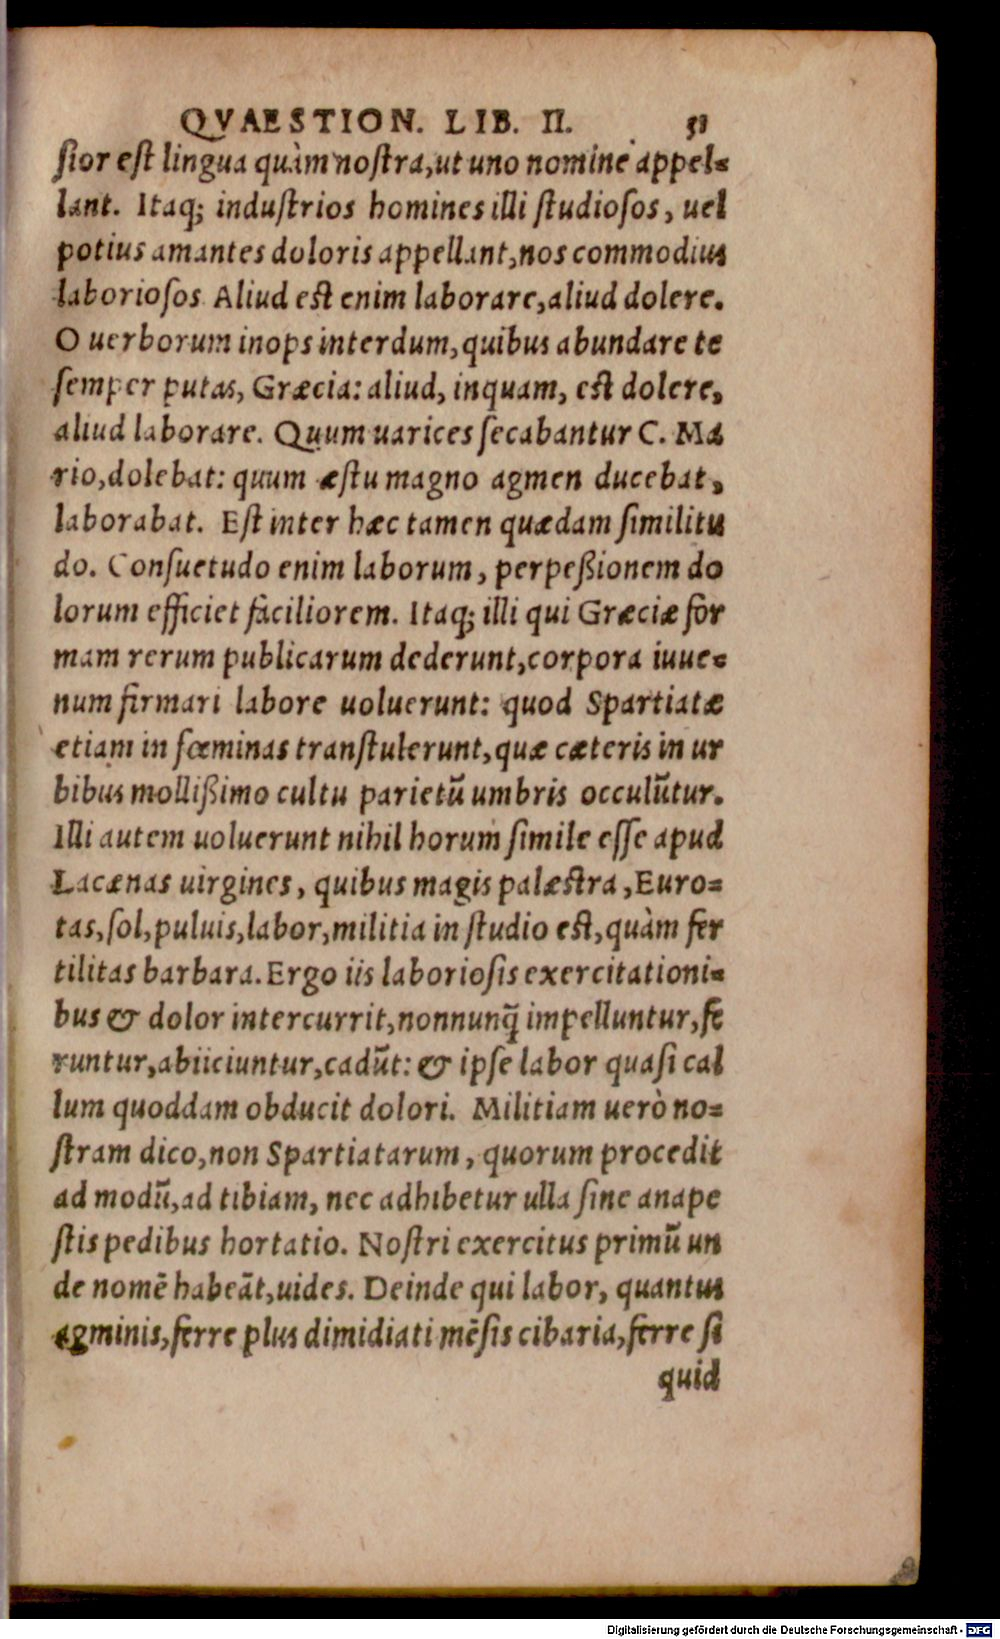 QVAESTION. LIB. II. 51
ſior eſt lingua quàm noſtra, ut uno nomine appel=
lant. Itaq; induſtrios homines illi ſtudioſos, uel
potius amantes doloris appellant, nos commodius
laborioſos Aliud eſt enim laborare, aliud dolere.
O uerborum inops interdum, quibus abundare te
ſemper putas, Græcia: aliud, inquam, eſt dolere,
aliud laborare. Quum uarices ſecabantur C. Ma
rio, dolebat: quum æſtu magno agmen ducebat,
laborabat. Eſt inter hæc tamen quædam ſimilitu
do. Conſuetudo enim laborum, perpeßionem do
lorum efficiet faciliorem. Itaq; illi qui Græciæ for
mam rerum publicarum dederunt, corpora iuue=
num firmari labore uoluerunt: quod Spartiatæ
etiam in fœminas tranſtulerunt, quæ cæteris in ur
bibus mollißimo cultu parietũ umbris occulũtur.
Illi autem uoluerunt nihil horum ſimile eſſe apud
Lacænas uirgines, quibus magis palæſtra, Euro=
tas, ſol, puluis, labor, militia in ſtudio eſt, quàm fer
tilitas barbara. Ergo iis laborioſis exercitationi=
bus & dolor intercurrit, nonnunq̃ impelluntur, fe
runtur, abiiciuntur, cadũt: & ipſe labor quaſi cal
lum quoddam obducit dolori. Militiam uerò no=
ſtram dico, non Spartiatarum, quorum procedit
ad modũ, ad tibiam, nec adhibetur ulla ſine anape
ſtis pedibus hortatio. Noſtri exercitus primũ un
de nomẽ habeãt, uides. Deinde qui labor, quantus
agminis, ferre plus dimidiati mẽſis cibaria, ferre ſi
quid
Digitalisierung gefördert durch die Deutsche Forschungsgemeinschaft - DFG